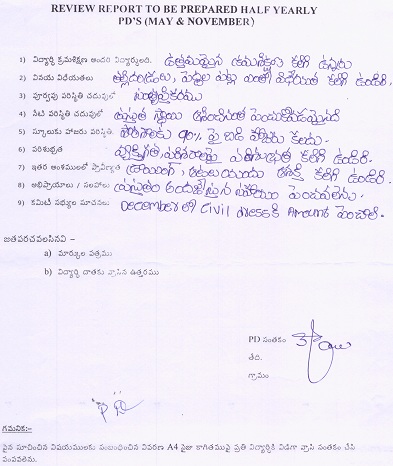 REVIEW REPORT TO BE PREPARED HALF YEARLY
PD'S (MAY & NOVEMBER)
1) విద్యార్థి క్రమశిక్షణ అందరి విద్యార్థులది. ఉత్తమమైన క్రమశిక్షణ కలిగి ఉన్నారు
2) వినయ విధేయతలు తల్లిదండ్రులు, పెద్దల పట్ల ఎంతో విధేయత కలిగి ఉండిరి.
3) పూర్వపు పరిస్థితి చదువులో సంతృప్తికరము
4) నేటి పరిస్థితి చదువులో ప్రస్తుత స్థాయి
5) స్కూలుకు హాజరు పరిస్థితి. 90% పై బడి హాజరు కలదు.
6) పరిశుభ్రత వ్యక్తిగత, పరిశుభ్రత కలిగి ఉండిరి.
7) ఇతర అంశములలో ప్రావీణ్యత డ్రాయింగ్, ఆటలయందు ఆసక్తి కలిగి ఉండిరి.
8) అభిప్రాయాలు / సలహాలు ప్రస్తుతం పెంచవలెను.
9) కమిటీ సభ్యుల సూచనలు December లో Civil dressకి Amount పెంచాలి.
జతపరచవలసినవి –
a) మార్కుల పత్రము
b) విద్యార్థి దాతకు వ్రాసిన ఉత్తరము
PD సంతకం
తేది.
గ్రామం
గమనిక:-
పైన సూచించిన విషయములకు సంబంధించిన వివరణ A4 సైజు కాగితముపై ప్రతి విద్యార్థికి విడిగా వ్రాసి సంతకం చేసి
పంపవలెను.